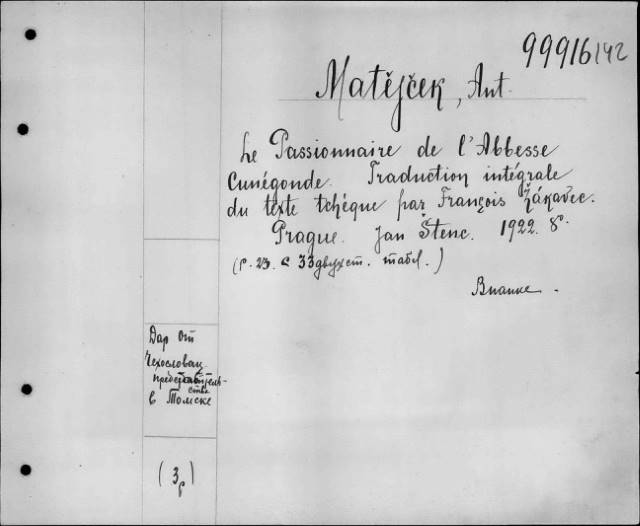 99916142
Matějček, Ant.
Le Passionnaire de l'Abbesse
Cunégonde. Traduction intégrale
du texte tchèque par François Žákavec.
Prague. Jan Štenc. 1922. 8°.
с 33 двухст. табл.)
В папке.
Дар от
Чехословац
представитель-
ства
в Томске
(3р)